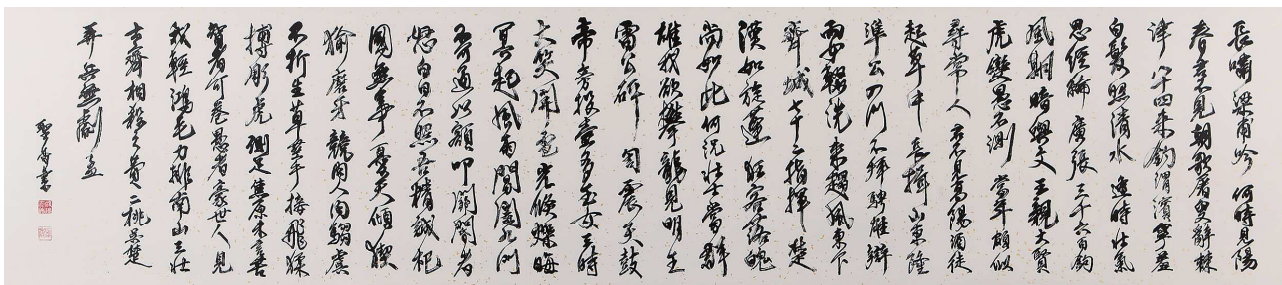 長嘯梁甫吟何時見陽
春君不見朝歌屠叟辭棘
津八十四來釣渭濱寧羞
白髮照清水逢時壯氣
思經綸廣張三千六百釣
風期暗與文王親大賢
虎變愚不測當年頗似
尋常人君不見高陽酒徒
起草中長揖山東隆
準公入門不拜騁雄辯
兩女輟洗來趨風東下
齊城七十二指揮楚
漢如旋蓬狂客落魄
尚如此何況壯士當群
雄我欲攀龍見明主
雷公砰訇震天鼓
帝旁投壺多玉女三時
大笑開電光倏爍晦
冥起風雨閶闔九門
不可通以額叩關閽者
怒白日不照吾精誠杞
國無事憂天傾猰
貐磨牙競人肉騶虞
不折生草莖手接飛猱
搏彫虎側足焦原未言苦
智者可卷愚者豪世人見
我輕鴻毛力排南山三壯
士齊相殺之費二桃吳楚
弄兵無劇孟
聖書